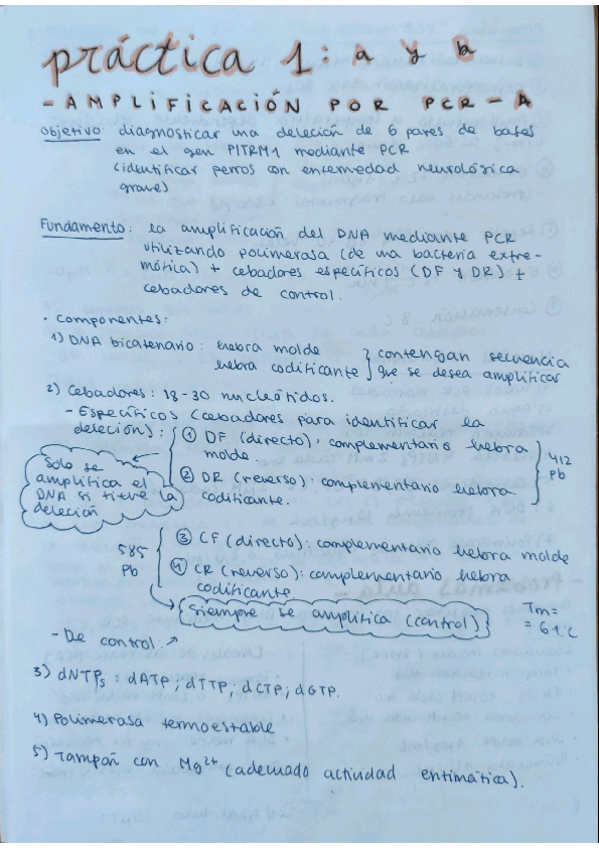 práctica 1: a y b
- AMPLIFICACIÓN POR PCR - A
objetivo: diagnosticar una deleción de 6 pares de bases
en el gen PITRM1 mediante PCR
(identificar perros con enfermedad neurológica
grave)
Fundamento: la amplificación del DNA mediante PCR
utilizando polimerasa (de una bacteria extre-
mótica) + cebadores específicos (DF y DR) +
cebadores de control.
· componentes:
1) DNA bicatenario: hebra molde
hebra codificante } contengan secuencia
que se desea amplificar
2) Cebadores: 18-30 nucleótidos.
- Específicos (cebadores para identificar la
deleción):
① DF (directo): complementario hebra
molde.
② DR (reverso): complementario hebra
codificante.
412
Pb
Solo se
amplifica el
DNA si tiene la
deleción
585
Pb
③ CF (directo): complementario hebra molde
④ CR (reverso): complementario hebra
codificante.
Siempre se amplifica (control)
Tm=
= 61°C
- De control ↗
3) dNTPs: dATP; dTTP; dCTP; dGTP.
4) Polimerasa termoestable
5) Tampón con Mg²⁺ (adecuado actividad enzimática).